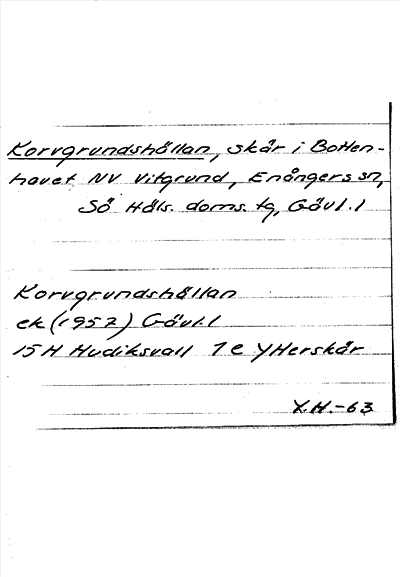 Korvgrundshällan, skär i Botten-
havet NV Vitgrund, Enångers sn,
Sö Häls. doms. tg, Gävl. l
Korvgrundshällan
ek (1957) Gävl. l
15H Hudiksvall 7e Ytterskär
Y.H.-63